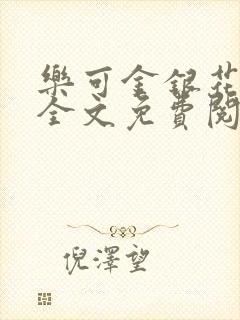 樂可金銀花
全文免費閱
倪澤望